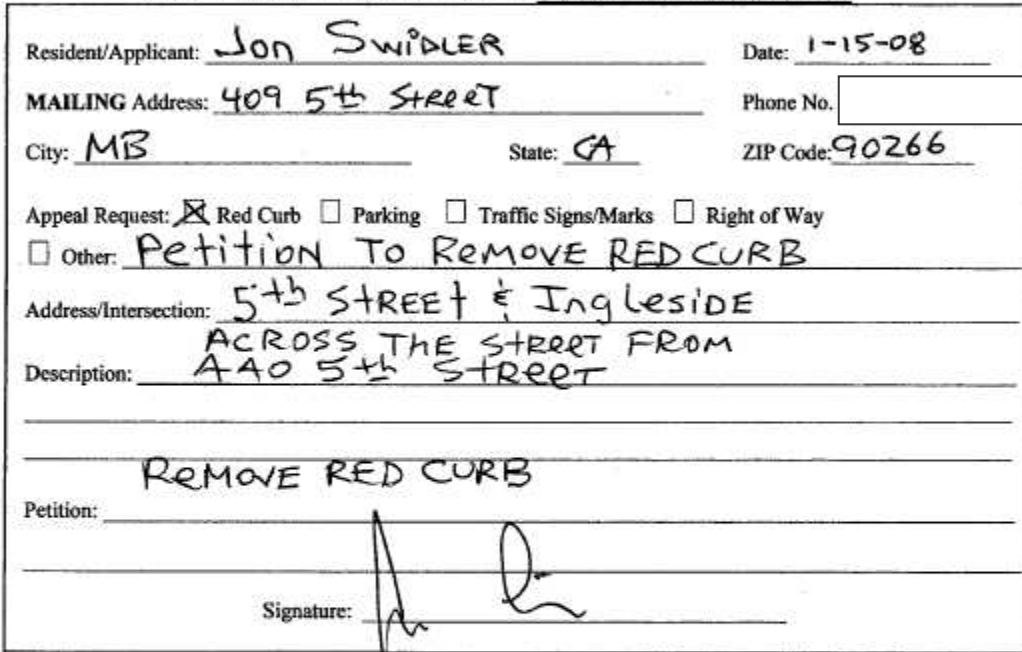 Resident/Applicant: Jon Swidler Date: 1-15-08
MAILING Address: 409 5th Street Phone No.
City: MB State: CA ZIP Code: 90266
Appeal Request: ☒ Red Curb ☐ Parking ☐ Traffic Signs/Marks ☐ Right of Way
☐ Other: Petition To Remove RED CURB
Address/Intersection: 5th Street & Ingleside
Across the street from
Description: 440 5th Street
Remove RED CURB
Petition:
Signature: